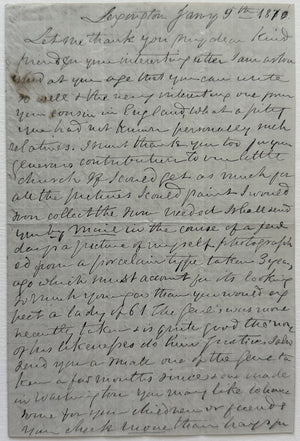 Lexington Jany 9th 1870
Let me thank you My dear kind
friend for your interesting letter I am aston
ished at your age that you can write
so well & the very interesting one from
your cousin in England What a pity
you had not known personally such
relatives. I must thank you too for your
generous contribution to our little
church If I could get as much for
all the pictures I could paint I would
soon collect the sum needed I shall send
you by mail in the course of a few
days a picture of myself photograph
ed from a porcelain type taken 3 years
ago which must account for its looking
so much younger than you would ex
pect a lady of 61 the Genl's was more
recently taken & is quite good tho' none
of his likenesses do him justice I also
send you a small one of the Genl ta
ken a few months since & one made
in Washington You may like to have
some for your children or friends
You check more than pays for